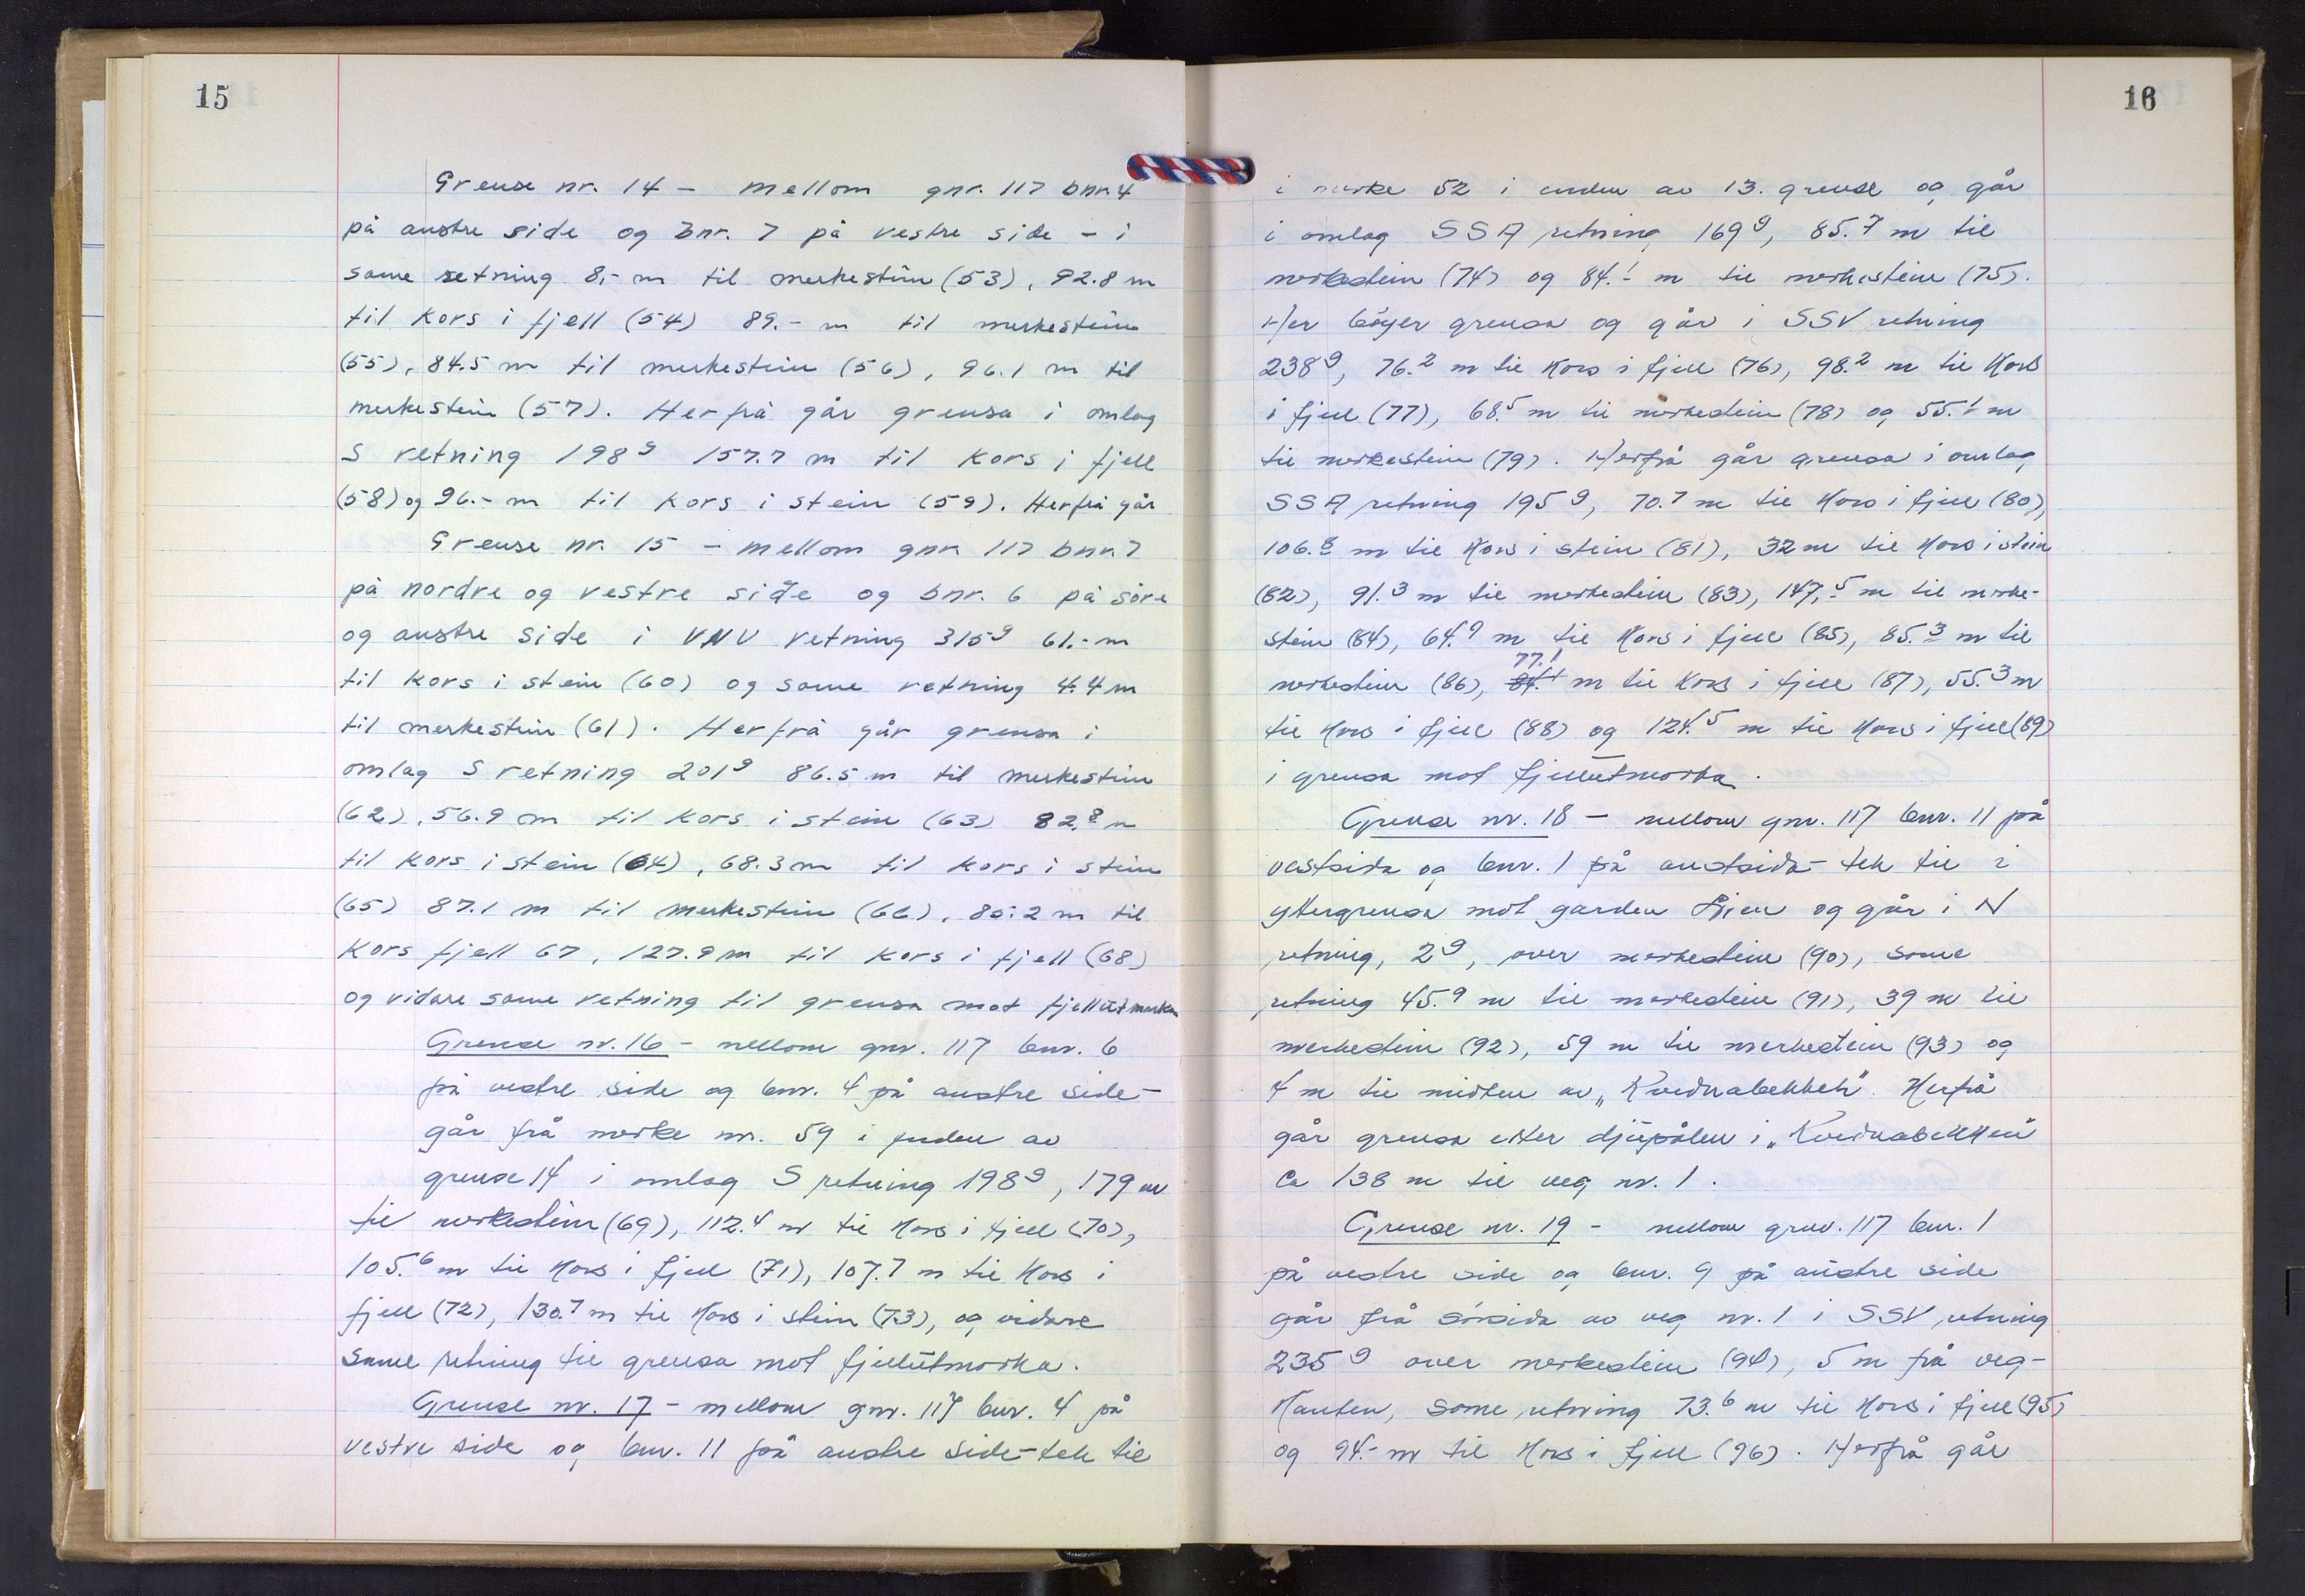 15
Grense nr. 14 – mellom gnr. 117 bnr. 4
på austre side og bnr. 7 på vestre side – i
same retning 8,- m til merkestein (53), 92.8 m
til kors i fjell (54) 89.- m til merkestein
(55), 84.5 m til merkestein (56), 96.1 m til
merkestein (57). Herfrå går grensa i omlag
S retning 198 g 157.7 m til kors i fjell
(58) og 96.- m til kors i stein (59). Herfrå går
Grense nr. 15 – mellom gnr. 117 bnr. 7
på nordre og vestre side og bnr. 6 på söre
og austre side i VNV retning 315 g 61.- m
til kors i stein (60) og same retning 4.4 m
til merkestein (61). Herfrå går grensa i
omlag S retning 201 g 86.5 m til merkestein
(62), 56.9 m til kors i stein (63) 82.8 m
til kors i stein (64), 68.3 m til kors i stein
(65) 87.1 m til merkestein (66), 85.2 m til
kors fjell 67, 127.9 m til kors i fjell (68)
og vidare same retning til grensa mot fjellutmarka
Grense nr. 16 – mellom gnr. 117 bnr. 6
på vestre side og bnr. 4 på austre side –
går frå merke nr. 59 i enden av
grense 14 i omlag S retning 198 g, 179 m
til merkestein (69), 112.4 m til kors i fjell (70),
105.6 m til kors i fjell (71), 107.7 m til kors i
fjell (72), 130.7 m til kors i stein (73), og vidare
same retning til grensa mot fjellutmarka.
Grense nr. 17 – mellom gnr. 117 bnr. 4 på
vestre side og bnr. 11 på austre side – tek til
16
i merke 52 i enden av 13. grense og går
i omlag SSA retning 169 g, 85.7 m til
merkestein (74) og 84.1 m til merkestein (75).
Her böyer grensa og går i SSV retning
238 g, 76.2 m til kors i fjell (76), 98.2 m til kors
i fjell (77), 68.5 m til merkestein (78) og 55.1 m
til merkestein (79). Herfrå går grensa i omlag
SSA retning 195 g, 70.7 m til kors i fjell (80),
106.8 m til kors i stein (81), 32 m til kors i stein
(82), 91.3 m til merkestein (83), 147,5 m til merke-
stein (84), 64.9 m til kors i fjell (85), 85.3 m til
77.1
merkestein (86), m til kors i fjell (87), 55.3 m
til kors i fjell (88) og 124.5 m til kors i fjell (89)
i grensa mot fjellutmarka.
Grense nr. 18 – mellom gnr. 117 bnr. 11 på
vestsida og bnr. 1 på austsida – tek til i
yttergrensa mot garden og går i N
retning, 2 g, over merkestein (90), same
retning 45.9 m til merkestein (91), 39 m til
merkestein (92), 59 m til merkestein (93) og
4 m til midten av "Kvednabekken". Herfrå
går grensa etter djupålen i "Kvednabekken"
ca 138 m til veg nr. 1.
Grense nr. 19 – mellom gnr. 117 bnr. 1
på vestre side og bnr. 9 på austre side
går frå sörsida av veg nr. 1 i SSV retning
235 g over merkestein (94), 5 m frå veg-
kanten, same retning 73.6 m til kors i fjell (95)
og 94.- m til kors i fjell (96). Herfrå går